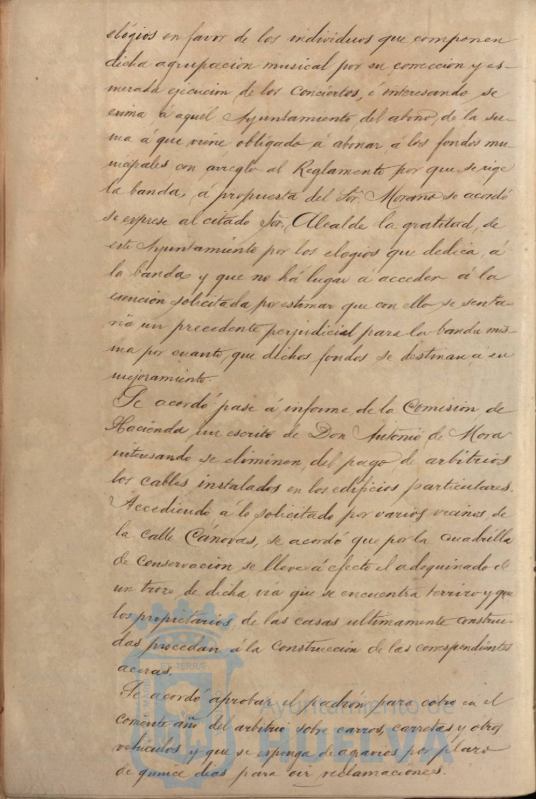 elógios en favor de los individuos que componen
dicha agrupacion musical por su correccion y es-
merada ejecucion de los conciertos, é interesando se
exima á aquel Ayuntamiento del abono, de la su-
ma á que viene obligado á abonar á los fondos mu-
nicipales con arreglo al Reglamento por que se rige
la banda, á propuesta del Sor. Morano se acordó
se exprese al citado Sor. Alcalde la gratitud, de
este Ayuntamiento por los elogios que dedica, á
la banda y que no há lugar á acceder á la
esencion solicitada por estimar que con ello se senta-
ria un precedente perjudicial para la banda mis-
ma por cuanto que dichos fondos se destinan á su
mejoramiento.
Se acordó pase á informe de la Comision de
Hacienda un escrito de Don Antonio de Mora
interesando se eliminen, del pago de arbitrios
los cables instalados en los edificios particulares.
Accediendo á lo solicitado por varios vecinos de
la calle Cánovas, se acordó que por la cuadrilla
de conservacion se lleve á efecto el adoquinado de
un trozo de dicha via que se encuentra terrizo y que
los propietarios de las casas ultimamente construi-
das procedan á la construccion de las correspondientes
aceras.
Se acordó aprobar el padrón para cobro en el
corriente año del arbitrio sobre carros, carretas y otros
vehiculos y que se esponga de agravios por plazo
de quince dias para oir reclamaciones.
Ayuntamiento de
HUELVA